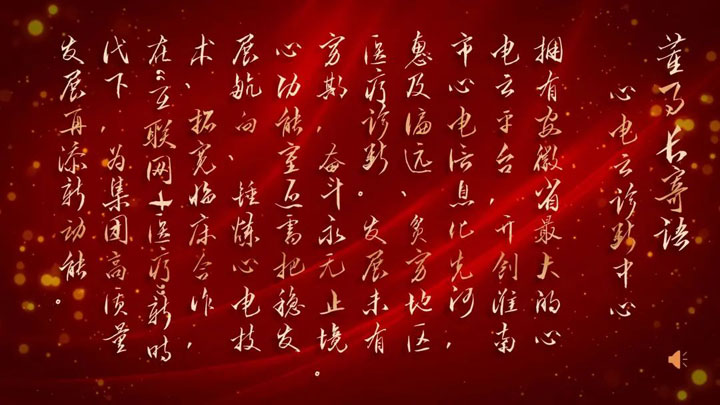 董事长寄语
心电云诊断中心
拥有安徽省最大的心
电云平台，开创淮南
市心电信息化先河，
惠及偏远、贫穷地区
医疗诊断。发展未有
穷期，奋斗永无止境。
心功能室还需把稳发
展航向、锤炼心电技
术、拓宽临床合作，
在“互联网+医疗”新时
代下，为集团高质量
发展再添新动能。